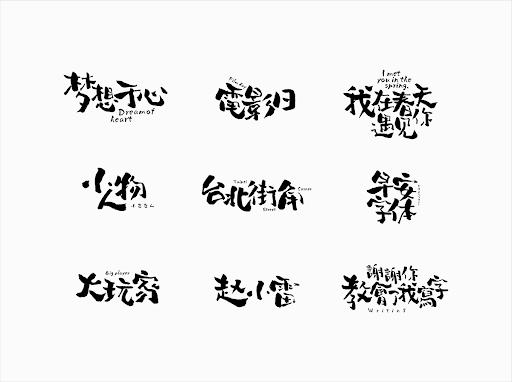 梦想于心
Dream of
heart
電影
I met
you in the
spring.
我在春天
遇见你
小人物
台北街角
Corner
Street
早安
字体
Big player
大玩家
赵小雷
謝謝你
教會了我寫字
Writing